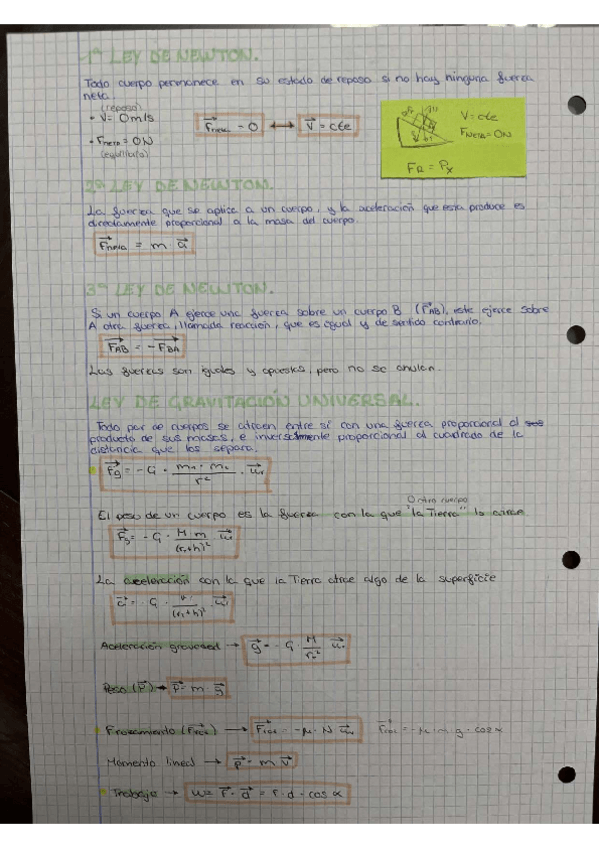 1ª LEY DE NEWTON.
Todo cuerpo permanece en su estado de reposo si no hay ninguna fuerza
neta.
(reposo)
• V = 0 m/s
• FNETA = 0N
(equilibrio)
Fneta = 0 ⟷ V = cte
V = cte
FNETA = 0N
FR = Px
2ª LEY DE NEWTON.
La fuerza que se aplica a un cuerpo, y la aceleración que esta produce es
directamente proporcional a la masa del cuerpo.
Fneta = m · a
3ª LEY DE NEWTON.
Si un cuerpo A ejerce una fuerza sobre un cuerpo B (FAB), este ejerce sobre
A otra fuerza, llamada reacción, que es igual y de sentido contrario.
FAB = - FBA
Las fuerzas son iguales y opuestas, pero no se anulan.
LEY DE GRAVITACIÓN UNIVERSAL.
Todo par de cuerpos se atraen entre sí con una fuerza proporcional al
producto de sus masas, e inversamente proporcional al cuadrado de la
distancia que los separa.
Fg = - G · m1 · m2 / r² · ur
O otro cuerpo
El peso de un cuerpo es la fuerza con la que "la Tierra" lo atrae
Fg = - G · M m / (rt+h)² ur
La aceleración con la que la Tierra atrae algo de la superficie
Aceleración gravedad → g = - G · M / r² ur
Peso (P) → P = m · g
Rozamiento (Froz) → Froz = - μ · N ur Froz = - μ · m · g · cos α
Momento lineal → p = m v
• Trabajo → W = F · d = F · d · cos α